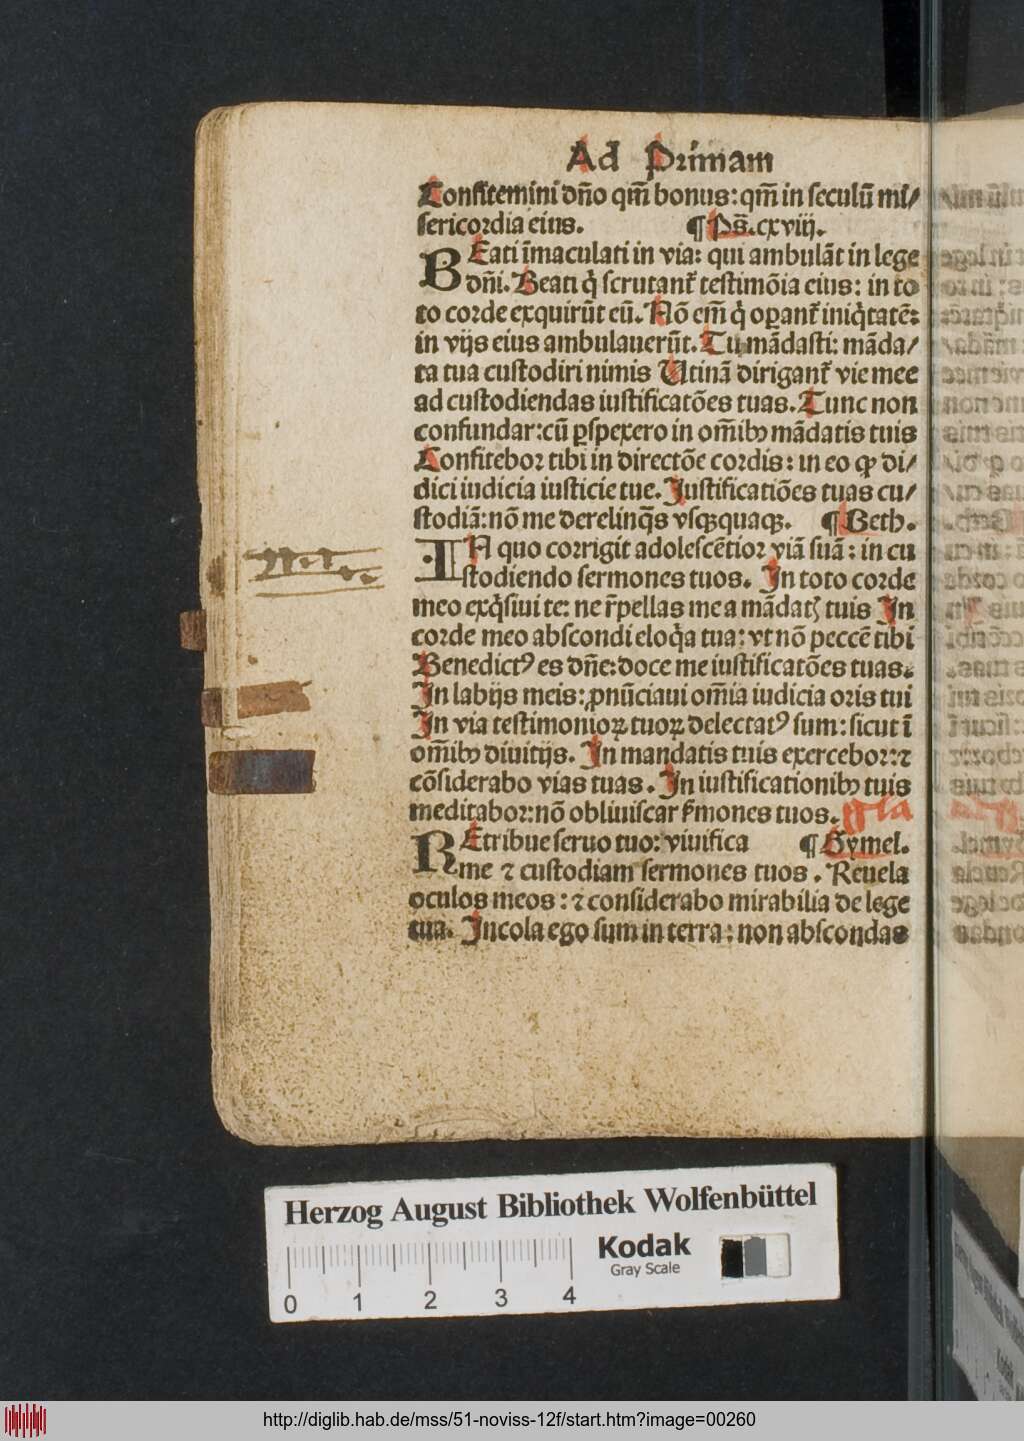 Ad Primam
Confitemini dño qm̃ bonus: qm̃ in seculũ mi/
sericordia eius. ¶ Ps̃. cxviij.
BEati ĩmaculati in via: qui ambulãt in lege
dñi. Beati q̇ scrutant᷑ testimõia eius: in to
to corde exquirũt eũ. Nõ em̃ q̇ oꝑant᷑ iniq̇tatẽ:
in vijs eius ambulauerũt. Tu mãdasti: mãda/
ta tua custodiri nimis Utinã dirigant᷑ vie mee
ad custodiendas iustificatões tuas. Tunc non
confundar: cũ ꝑspexero in om̃ibꝰ mãdatis tuis
Confitebor tibi in directõe cordis: in eo ꝙ di/
dici iudicia iusticie tue. Justificatiões tuas cu/
stodiã: nõ me derelinq̃s vsqꝫquaqꝫ. ¶ Beth.
IN quo corrigit adolescẽtior viã suã: in cu
stodiendo sermones tuos. In toto corde
meo exq̇siui te: ne r̃pellas me a mãdatꝭ tuis In
corde meo abscondi eloq̇a tua: vt nõ peccẽ tibi
Benedictꝰ es dñe: doce me iustificatões tuas.
In labijs meis: ꝓnũciaui om̃ia iudicia oris tui
In via testimonioꝝ tuoꝝ delectatꝰ sum: sicut ĩ
om̃ibꝰ diuitijs. In mandatis tuis exercebor: ⁊
cõsiderabo vias tuas. In iustificationibꝰ tuis
meditabor: nõ obliuiscar s̃mones tuos. gl̃a
REtribue seruo tuo: viuifica ¶ Gymel.
me ⁊ custodiam sermones tuos. Reuela
oculos meos: ⁊ considerabo mirabilia de lege
tua. Incola ego sum in terra: non abscondas
Herzog August Bibliothek Wolfenbüttel
Kodak
Gray Scale
0 1 2 3 4
http://diglib.hab.de/mss/51-noviss-12f/start.htm?image=00260